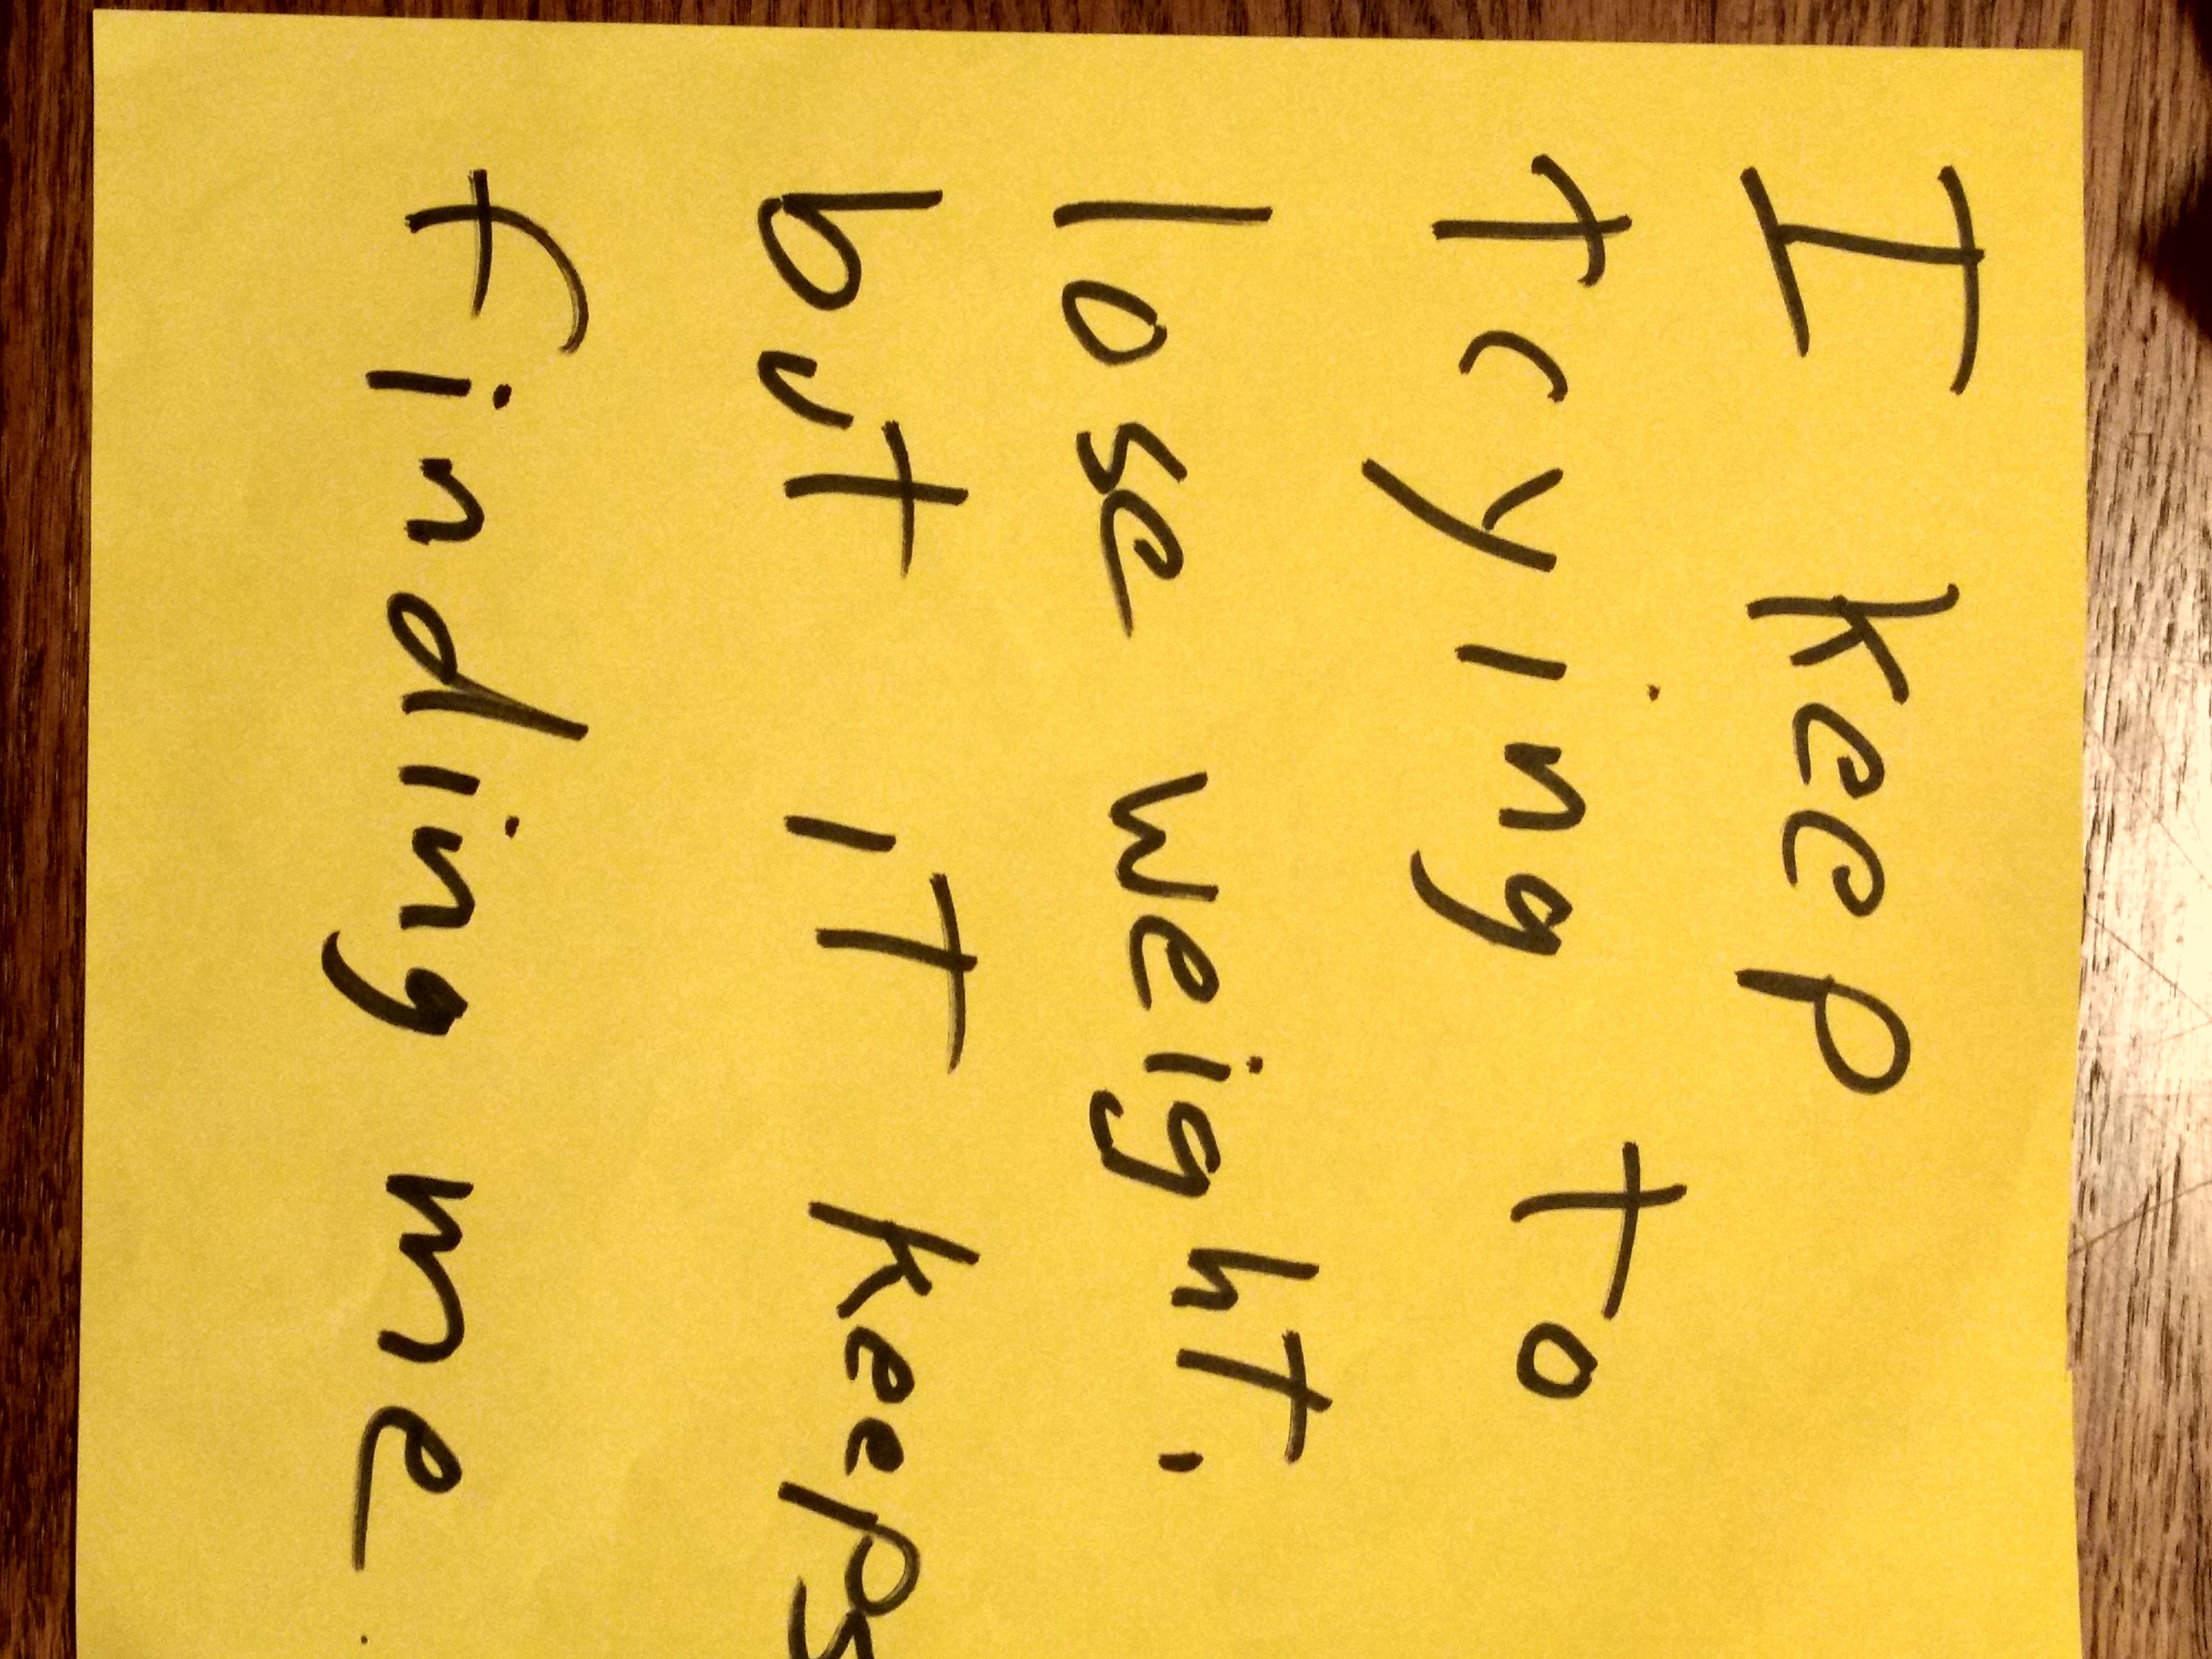 I keep
trying to
lose weight,
but IT keeps
finding me.